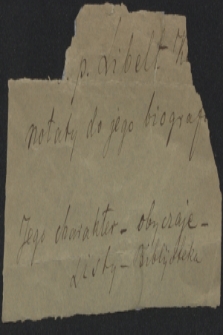 p. Libelt
notaty do jego biograf
Jego charakter – obyczaje –
Listy – Biblioteka